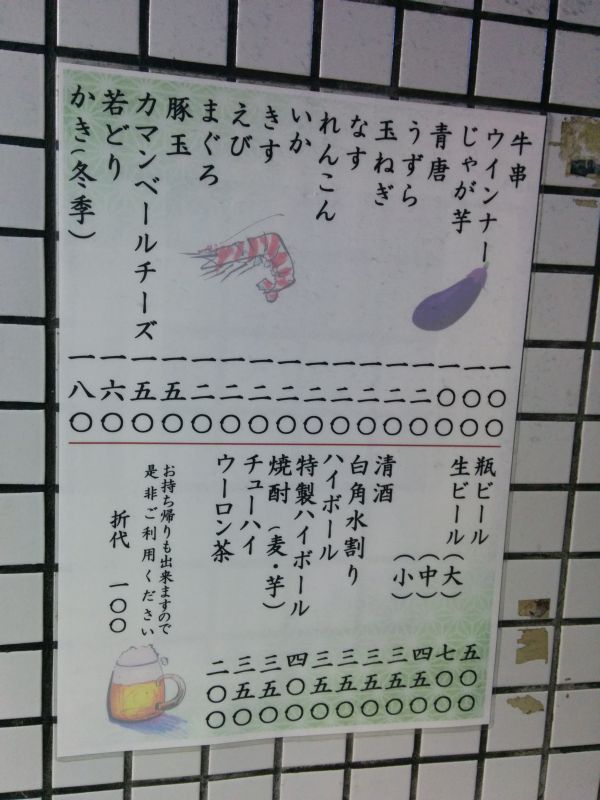 牛串 一〇〇
ウインナー 一〇〇
じゃが芋 一〇〇
青唐 一二〇
うずら 一二〇
玉ねぎ 一二〇
なす 一二〇
れんこん 一二〇
いか 一二〇
きす 一二〇
えび 一二〇
まぐろ 一二〇
豚玉 一五〇
カマンベールチーズ 一五〇
若どり 一六〇
かき(冬季) 一八〇
瓶ビール 五〇〇
生ビール(大) 七〇〇
(中) 四五〇
(小) 三五〇
清酒 三五〇
白角水割り 三五〇
ハイボール 三五〇
特製ハイボール 四〇〇
焼酎(麦・芋) 三五〇
チューハイ 三五〇
ウーロン茶 二〇〇
お持ち帰りも出来ますので
是非ご利用ください
折代 一〇〇